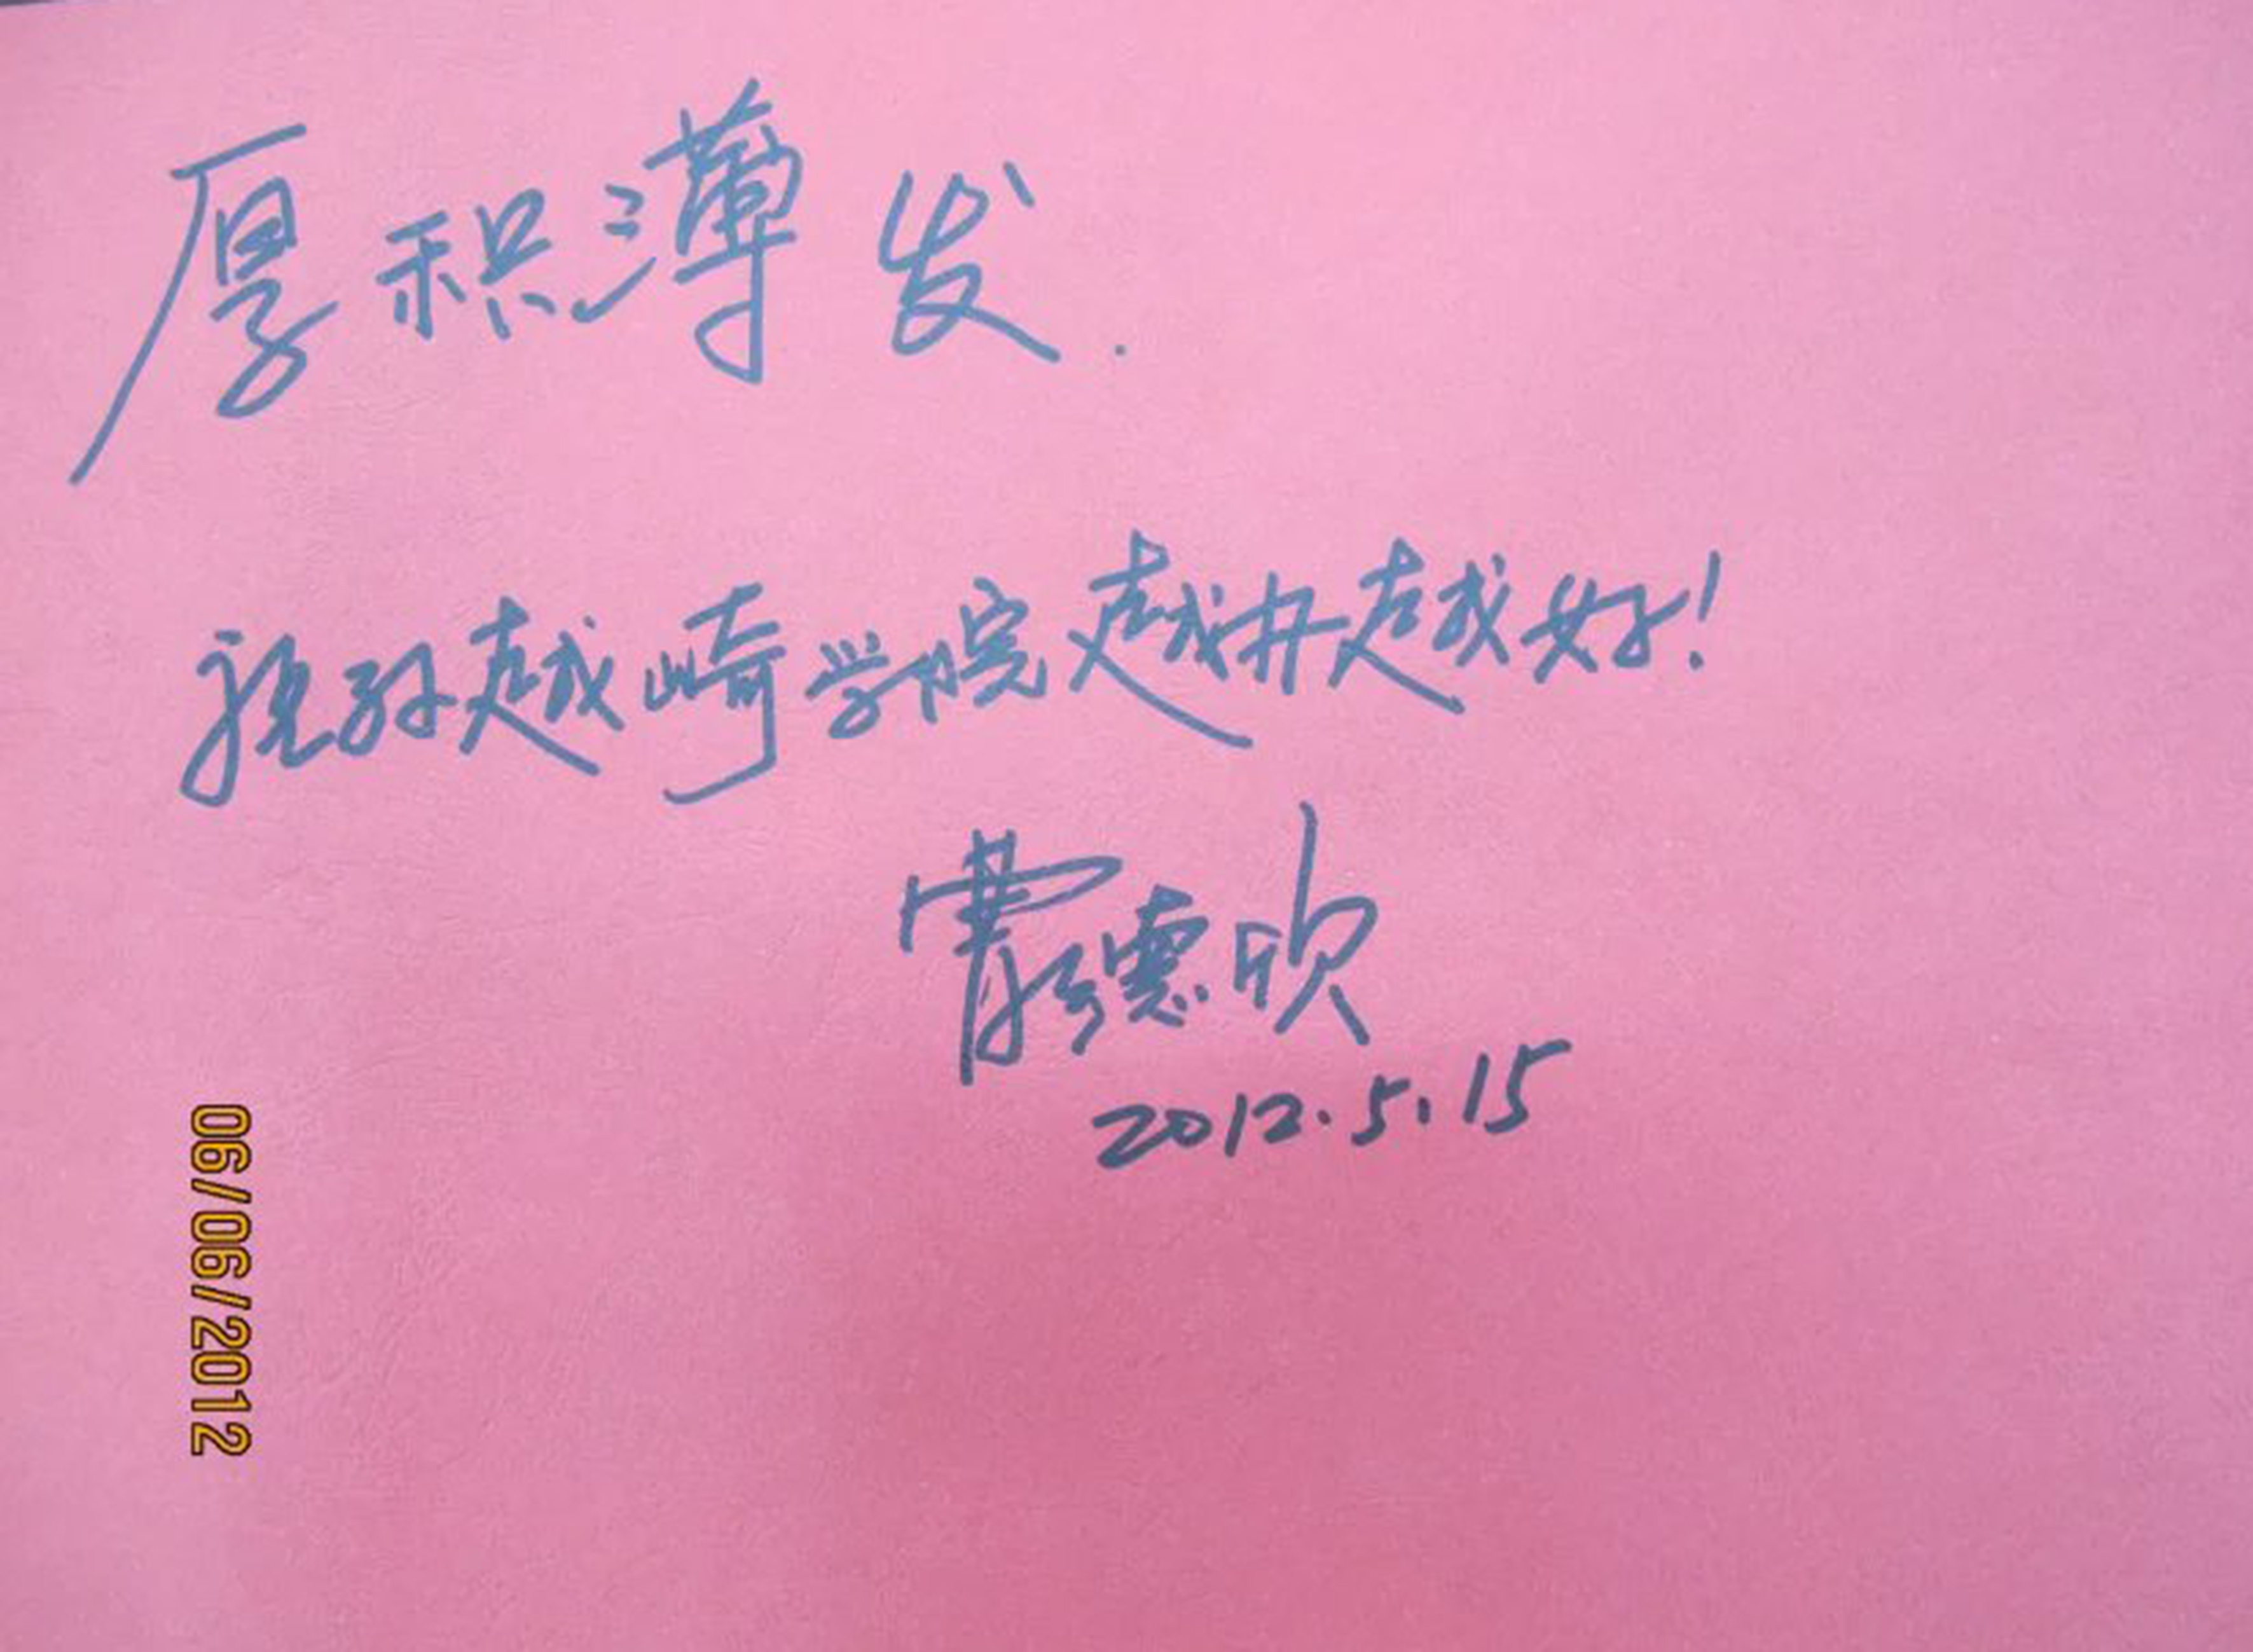 厚积薄发.
祝孙越崎学院越办越好!
德欣
2012.5.15
06/06/2012